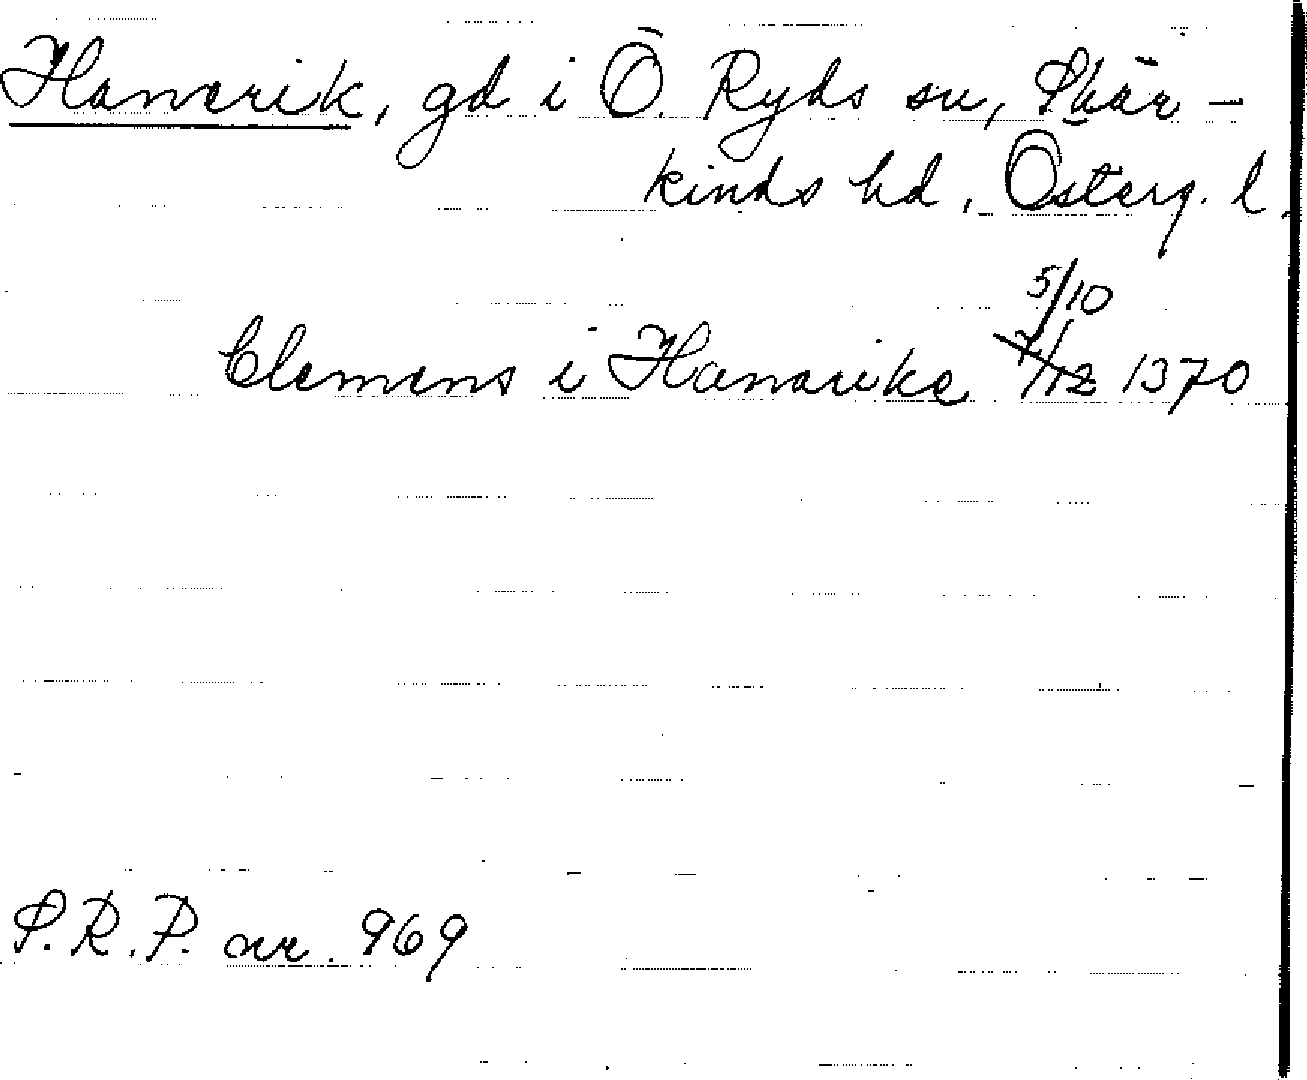 Hanorik, gd i Ö. Ryds sn, Skär-
kinds hd, Österg. l.
5/10
Clemens i Hanarike 1370
S.R.P. nr. 969